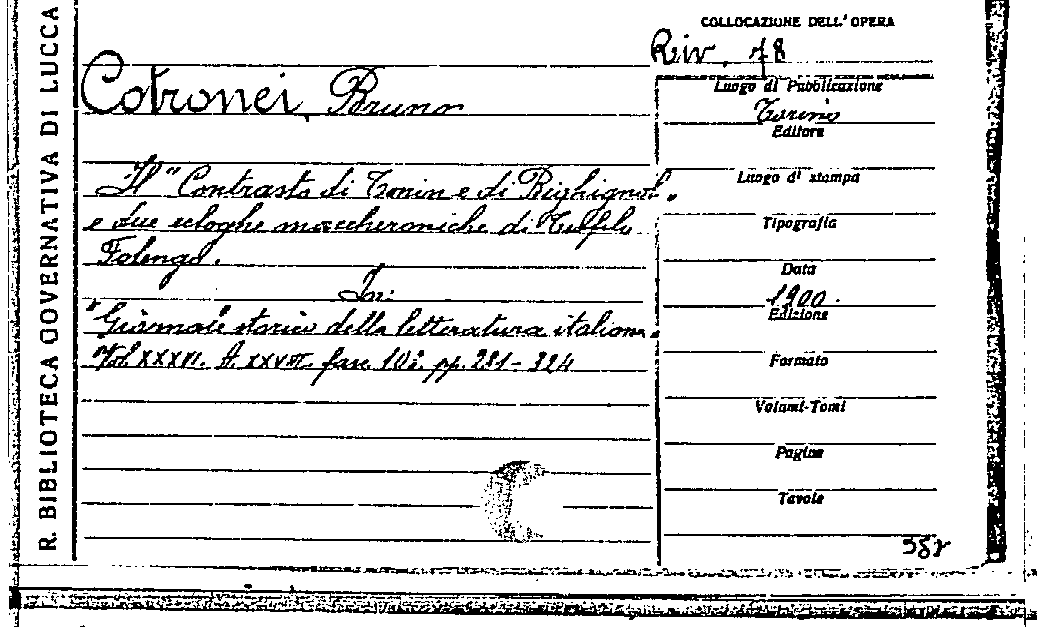 R. BIBLIOTECA GOVERNATIVA DI LUCCA
COLLOCAZIONE DELL'OPERA
Riv. 78
Cotronei, Bruno
Il "Contrasto di Tonin e di Bighignol"
e due ecloghe maccheroniche di Teofilo
Folengo.
In:
"Giornale storico della letteratura italiana"
Vol. XXXVI. A. XVIII. fasc. 108. pp. 281-324
Luogo di Pubblicazione
Torino
Editore
Luogo di stampa
Tipografia
Data
1900.
Edizione
Formato
Volumi-Tomi
Pagine
Tavole